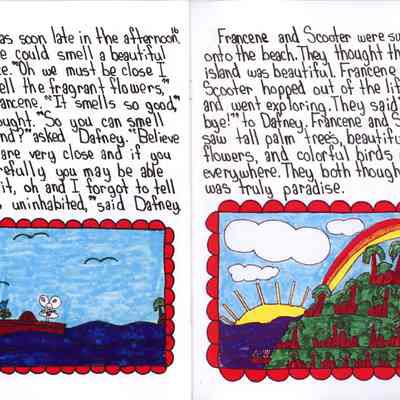 as soon late in the afternoon."
e could smell a beautiful
ce. "Oh we must be close I
ell the fragrant flowers,"
ancene. "It smells so good,"
ought. "So you can smell
nd?" asked Dafney. "Believe
are very close and if you
refully you may be able
it, oh and I forgot to tell
uninhabited," said Dafney
Francene and Scooter were su
onto the beach. They thought th
island was beautiful. Francene
Scooter hopped out of the lif
and went exploring. They said
bye!" to Dafney. Francene and S
saw tall palm trees, beautifu
flowers, and colorful birds
everywhere. They both though
was truly paradise.